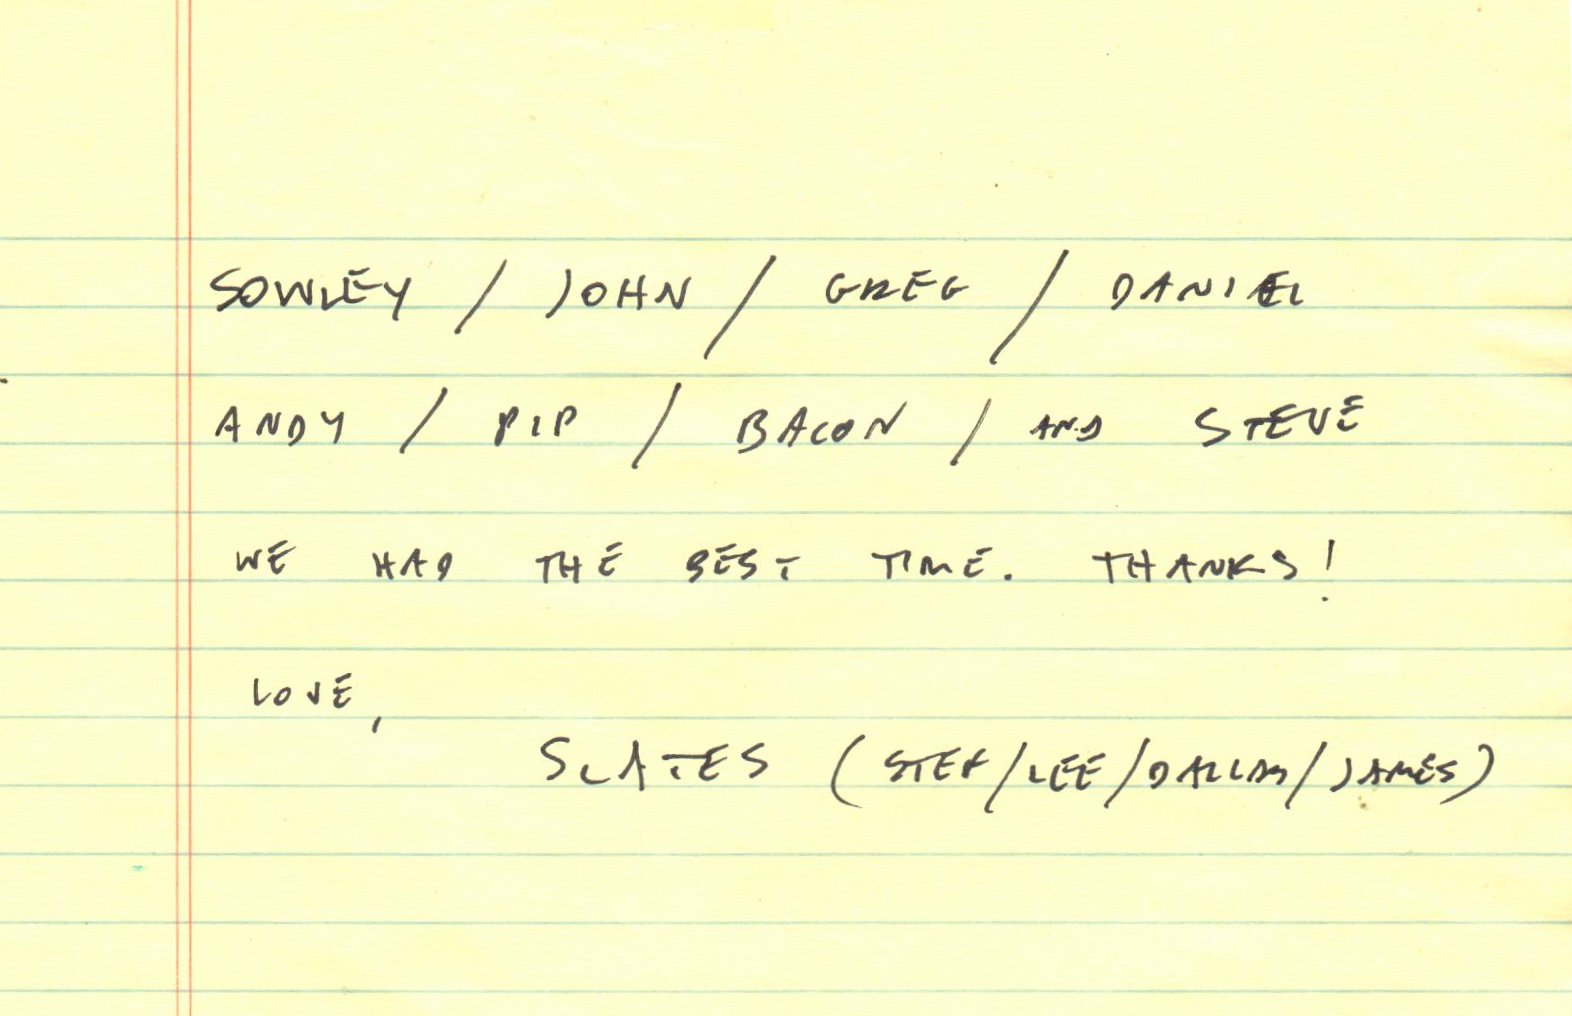 SOWLEY / JOHN / GREG / DANIEL
ANDY / PIP / BACON / AND STEVE
WE HAD THE BEST TIME. THANKS!
LOVE,
SLATES (STEF/LEE/DALLAS/JAMES)